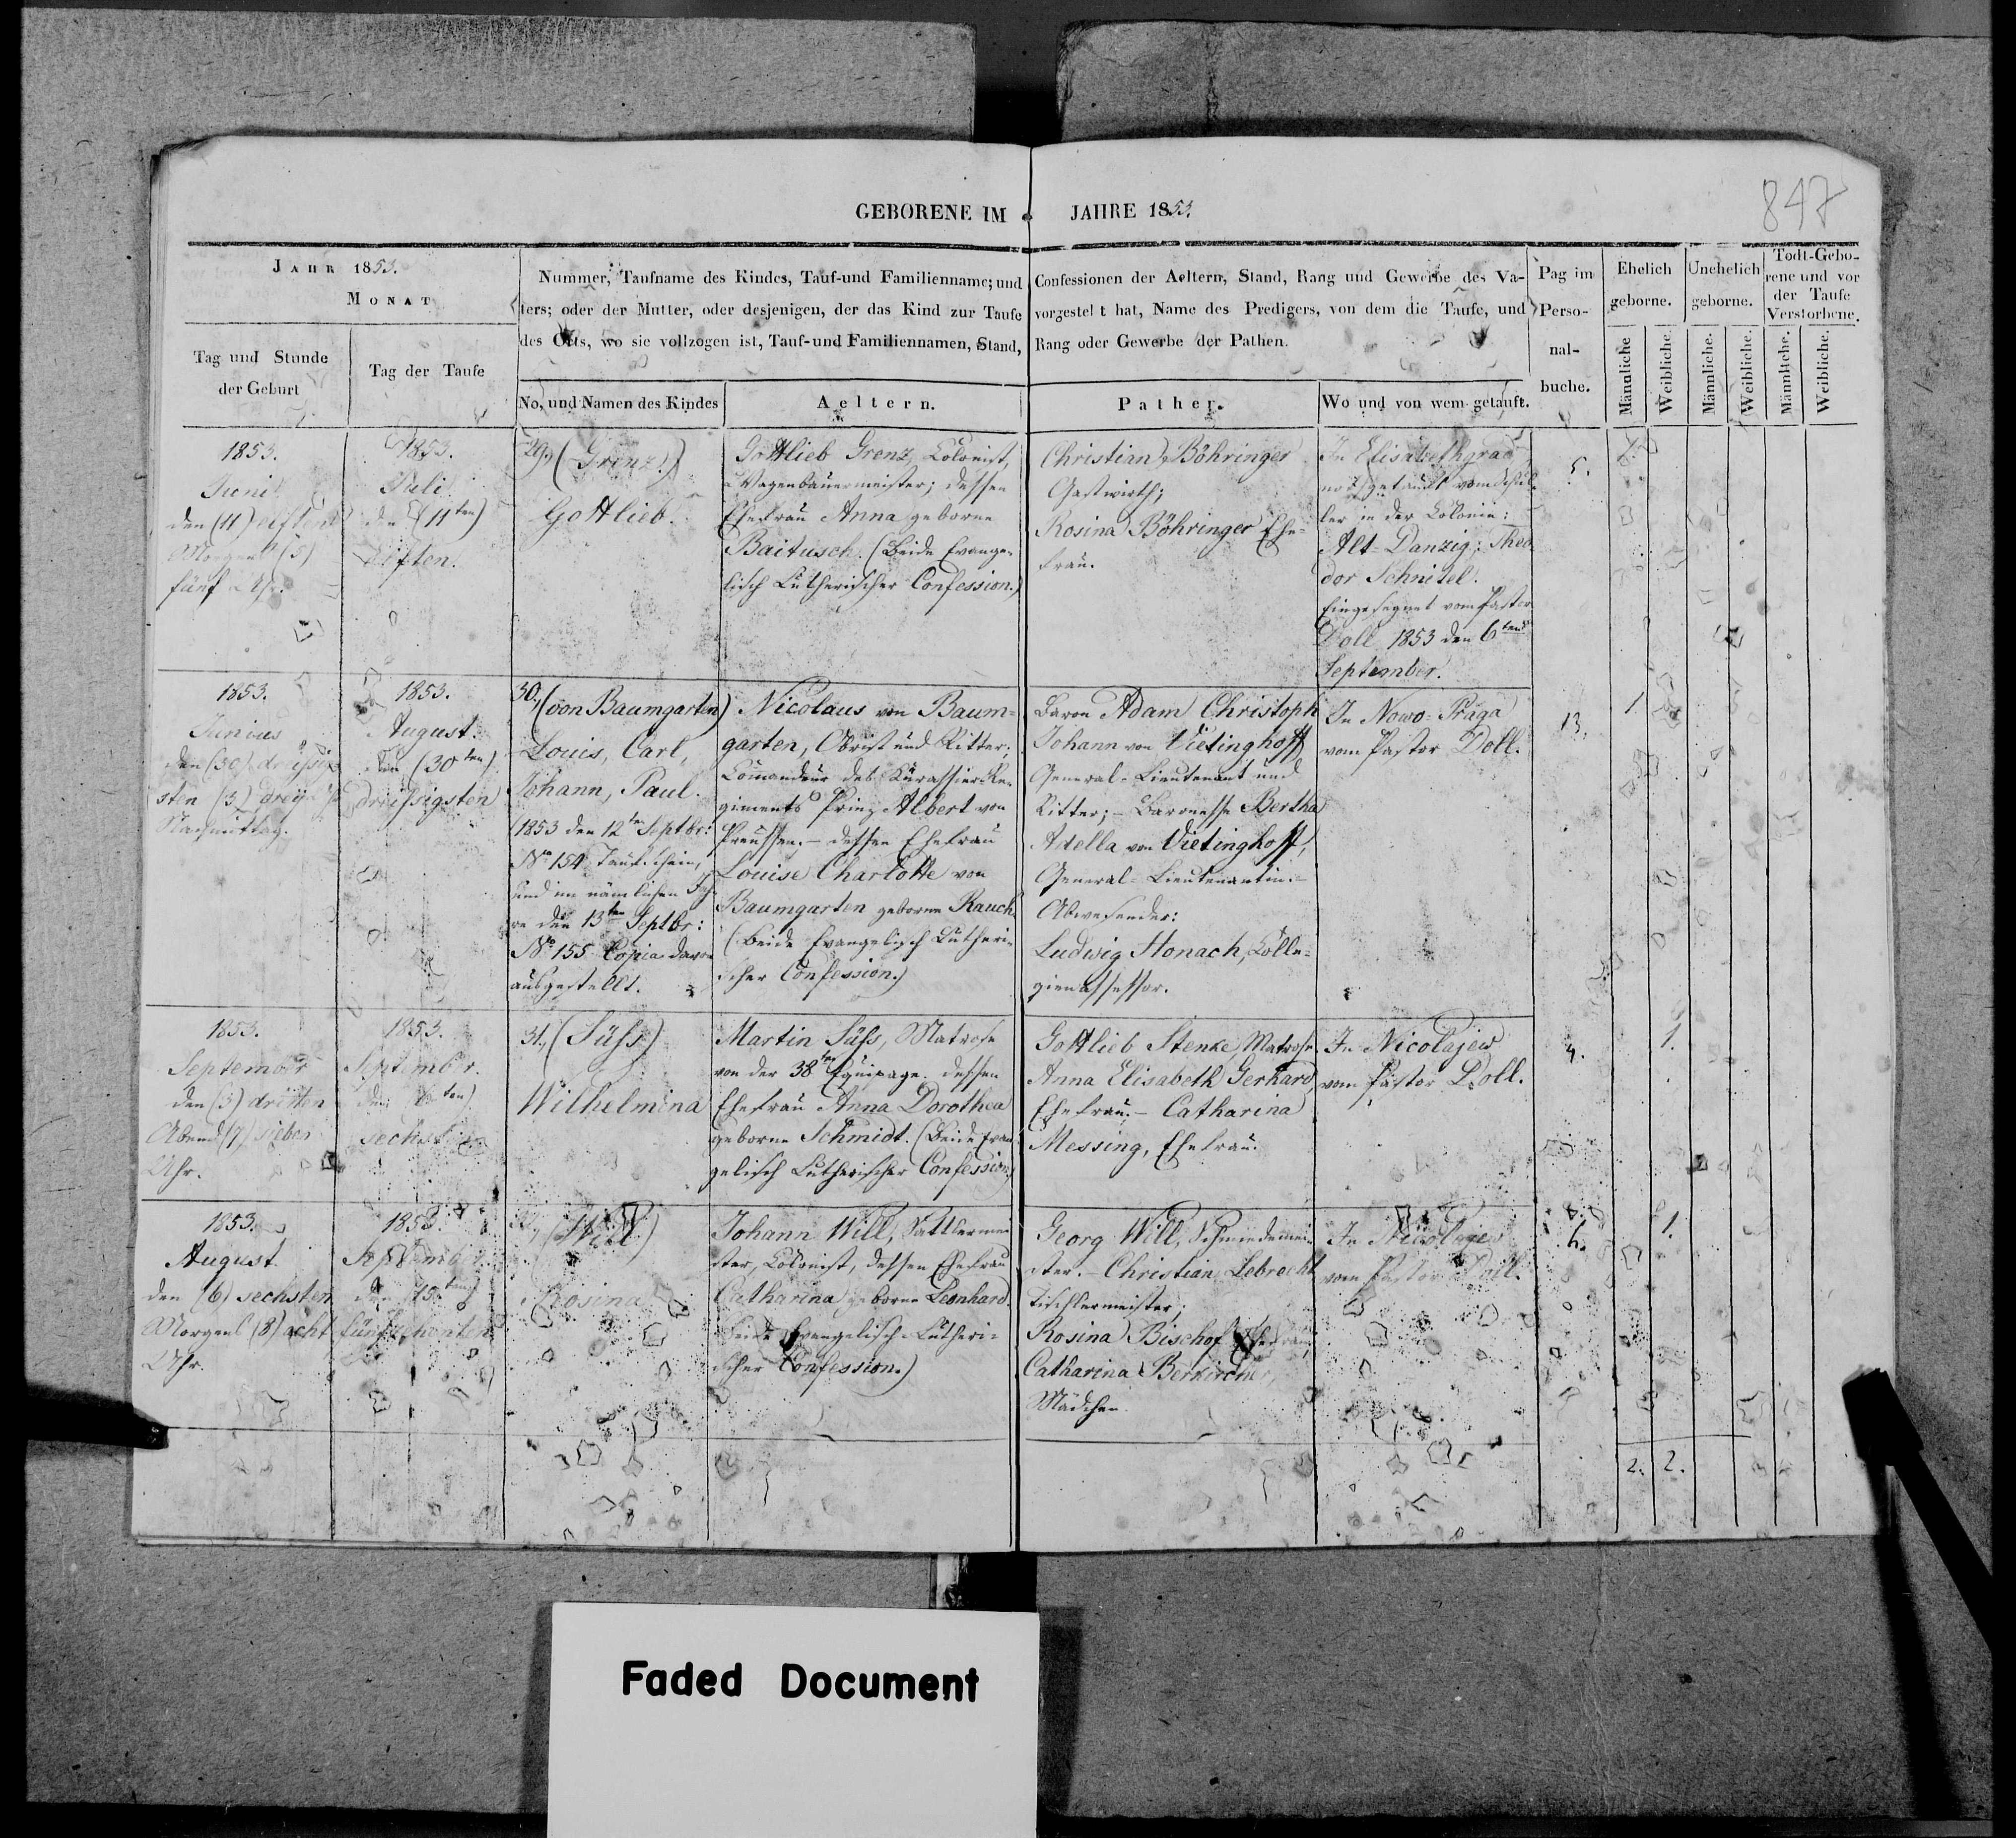 847
GEBORENE IM JAHRE 1853.
JAHR 1853.
MONAT
Tag und Stunde
der Geburt
Tag der Taufe
Nummer, Taufname des Kindes, Tauf-und Familienname; und
ters; oder der Mutter, oder desjenigen, der das Kind zur Taufe
des Orts, wo sie vollzogen ist, Tauf-und Familiennamen, Stand,
No, und Namen des Kindes
Aeltern.
Confessionen der Aeltern, Stand, Rang und Gewerbe des Va-
vorgestellt hat, Name des Predigers, von dem die Taufe, und
Rang oder Gewerbe der Pathen.
Pather.
Wo und von wem getauft.
Pag im
Perso-
nal-
buche.
Ehelich
geborne.
Unehelich
geborne.
Todt-Gebo-
rene und vor
der Taufe
Verstorbene.
Männliche
Weibliche.
Männliche.
Weibliche.
Männliche.
Weibliche.
1853.
Juni
den (11) eilften
Morgens (5)
fünf Uhr.
1853.
Juli
den (11ten)
eilften.
29., (Grenz.)
Gottlieb.
Gottlieb Grenz, Colonist,
Wagenbauermeister; dessen
Ehefrau Anna geborne
Baitusch. (Beide Evange-
lisch Lutherischer Confession.)
Christian Böhringer
Gastwirth;
Rosina Böhringer Ehe-
frau.
In Elisabethgrad
nothgetauft vom Schül-
ler in der Colonie:
Alt-Danzig; Theo-
dor Schnitel.
Eingesegnet vom Pastor
Doll 1853 den 6ten
September.
5.
1.
1853.
Junius
den (30) dreißig-
sten (3) drey Uhr
Nachmittag.
1853.
August.
den (30ten)
dreißigsten
30., (von Baumgarten)
Louis, Carl,
Johann, Paul.
1853 den 12ten Septbr:
No 154 Taufschein,
und im nämlichen Jah-
re den 13ten Septbr:
No 155 Copia davon
ausgestellt.
Nicolaus von Baum-
garten, Obrist und Ritter,
Commandeur des Kürassier Re-
giments Prinz Albert von
Preussen. - dessen Ehefrau
Louise Charlotte von
Baumgarten geborne Rauch.
(Beide Evangelisch Lutheri-
scher Confession.)
Baron Adam Christoph
Johann von Vietinghoff
General-Lieutenant und
Ritter; - Baronesse Bertha
Adella von Vietinghoff,
General-Lieutenantin. -
Abwesender:
Ludwig Honach, Colle-
gienassessor.
In Nowo-Praga
vom Pastor Doll.
13.
1.
1853.
September
den (3) dritten
Abend (7) sieben
Uhr.
1853.
September.
den (6ten)
sechsten
31., (Süss)
Wilhelmina
Martin Süss, Matrose
von der 38ten Equipage. dessen
Ehefrau Anna Dorothea
geborne Schmidt. (Beide Evan-
gelisch Lutherischer Confession.)
Gottlieb Stenke, Matrose.
Anna Elisabeth Gerhard,
Ehefrau. - Catharina
Messing, Ehefrau.
In Nicolajew
vom Pastor Doll.
4.
1.
1853.
August.
den (6) sechsten
Morgens (8) acht
Uhr.
1853.
September.
den (15ten)
fünfzehnten
32., (Will)
Rosina
Johann Will, Sattlermei-
ster, Colonist, dessen Ehefrau
Catharina geborne Leonhard.
(Beide Evangelisch Lutheri-
scher Confession.)
Georg Will, Schmiedemei-
ster. - Christian Lebrecht
Tischlermeister;
Rosina Bischof Ehefrau,
Catharina
Mädchen.
In Nicolajew
vom Pastor Doll.
6.
1.
2. 2.
Faded Document